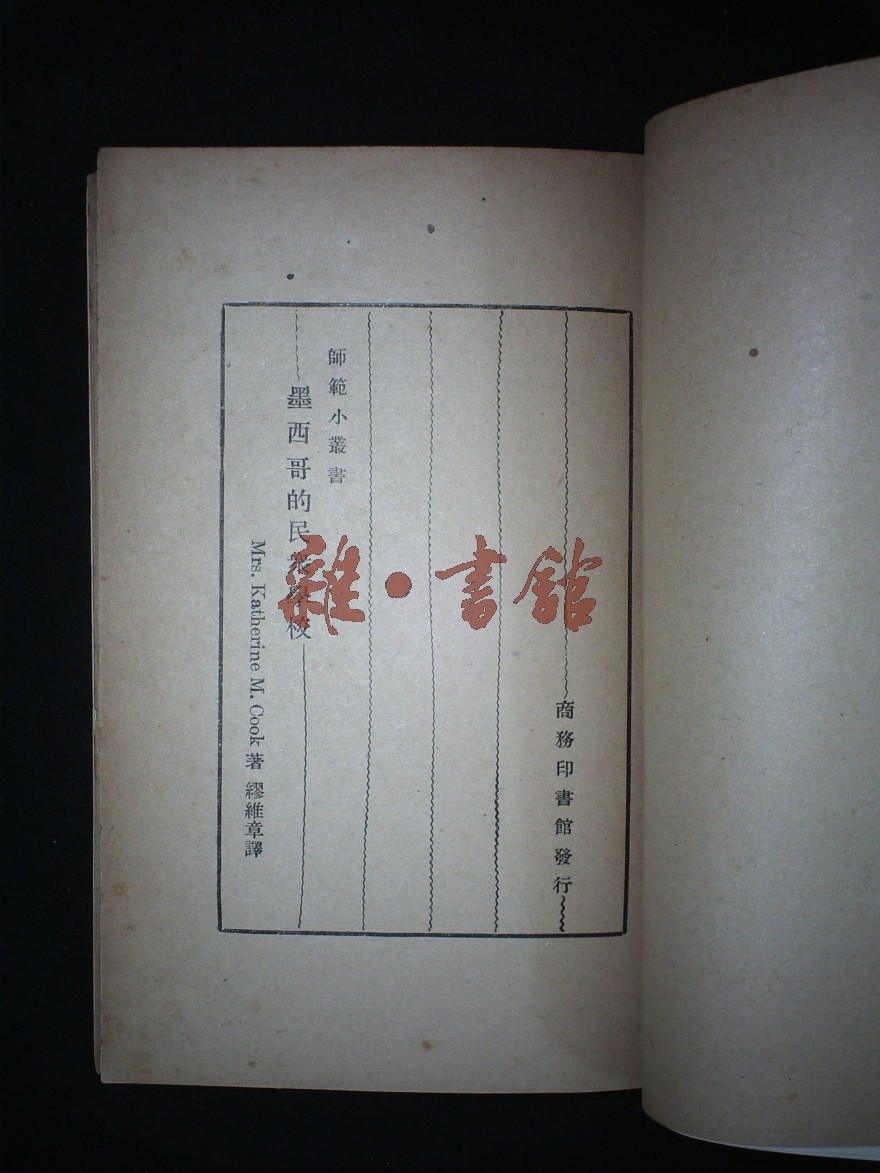 師範小叢書
墨西哥的民衆學校
Mrs. Katherine M. Cook 著 繆維章譯
商務印書館發行
雜·書館